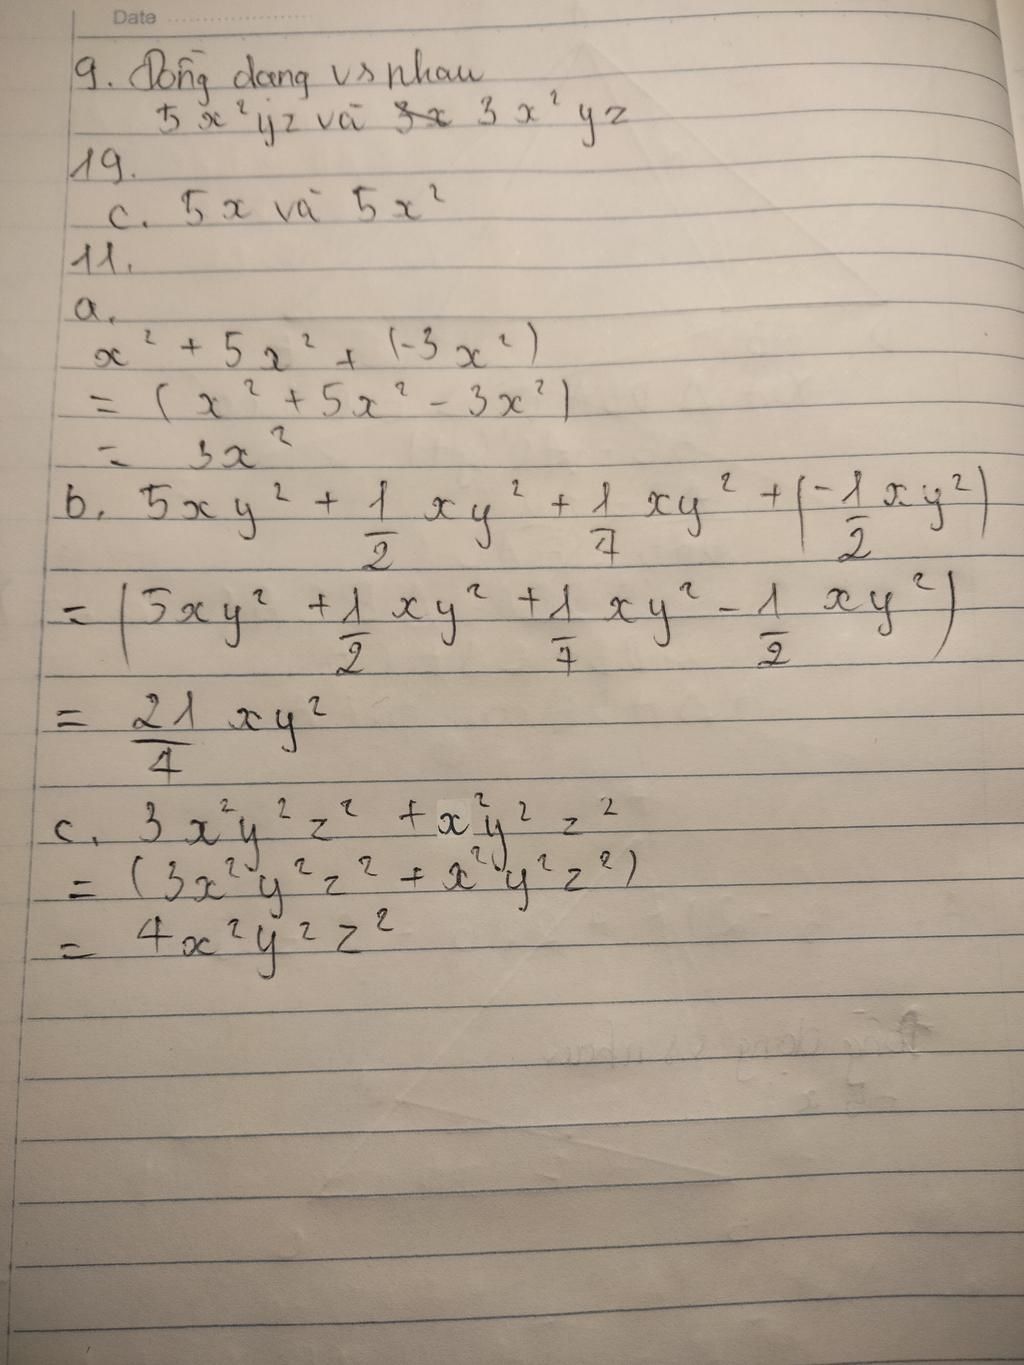 Date
9. Đồng dạng vs nhau
5x²yz và 3x 3x²yz
19.
c. 5x và 5x²
11.
a.
x² + 5x² + (-3x²)
= (x² + 5x² - 3x²)
= 3x²
b. 5xy² + 1/2 xy² + 1/7 xy² + (-1/2 xy²)
= (5xy² + 1/2 xy² + 1/7 xy² - 1/2 xy²)
= 21/4 xy²
c. 3x²y²z² + x²y²z²
= (3x²y²z² + x²y²z²)
= 4x²y²z²